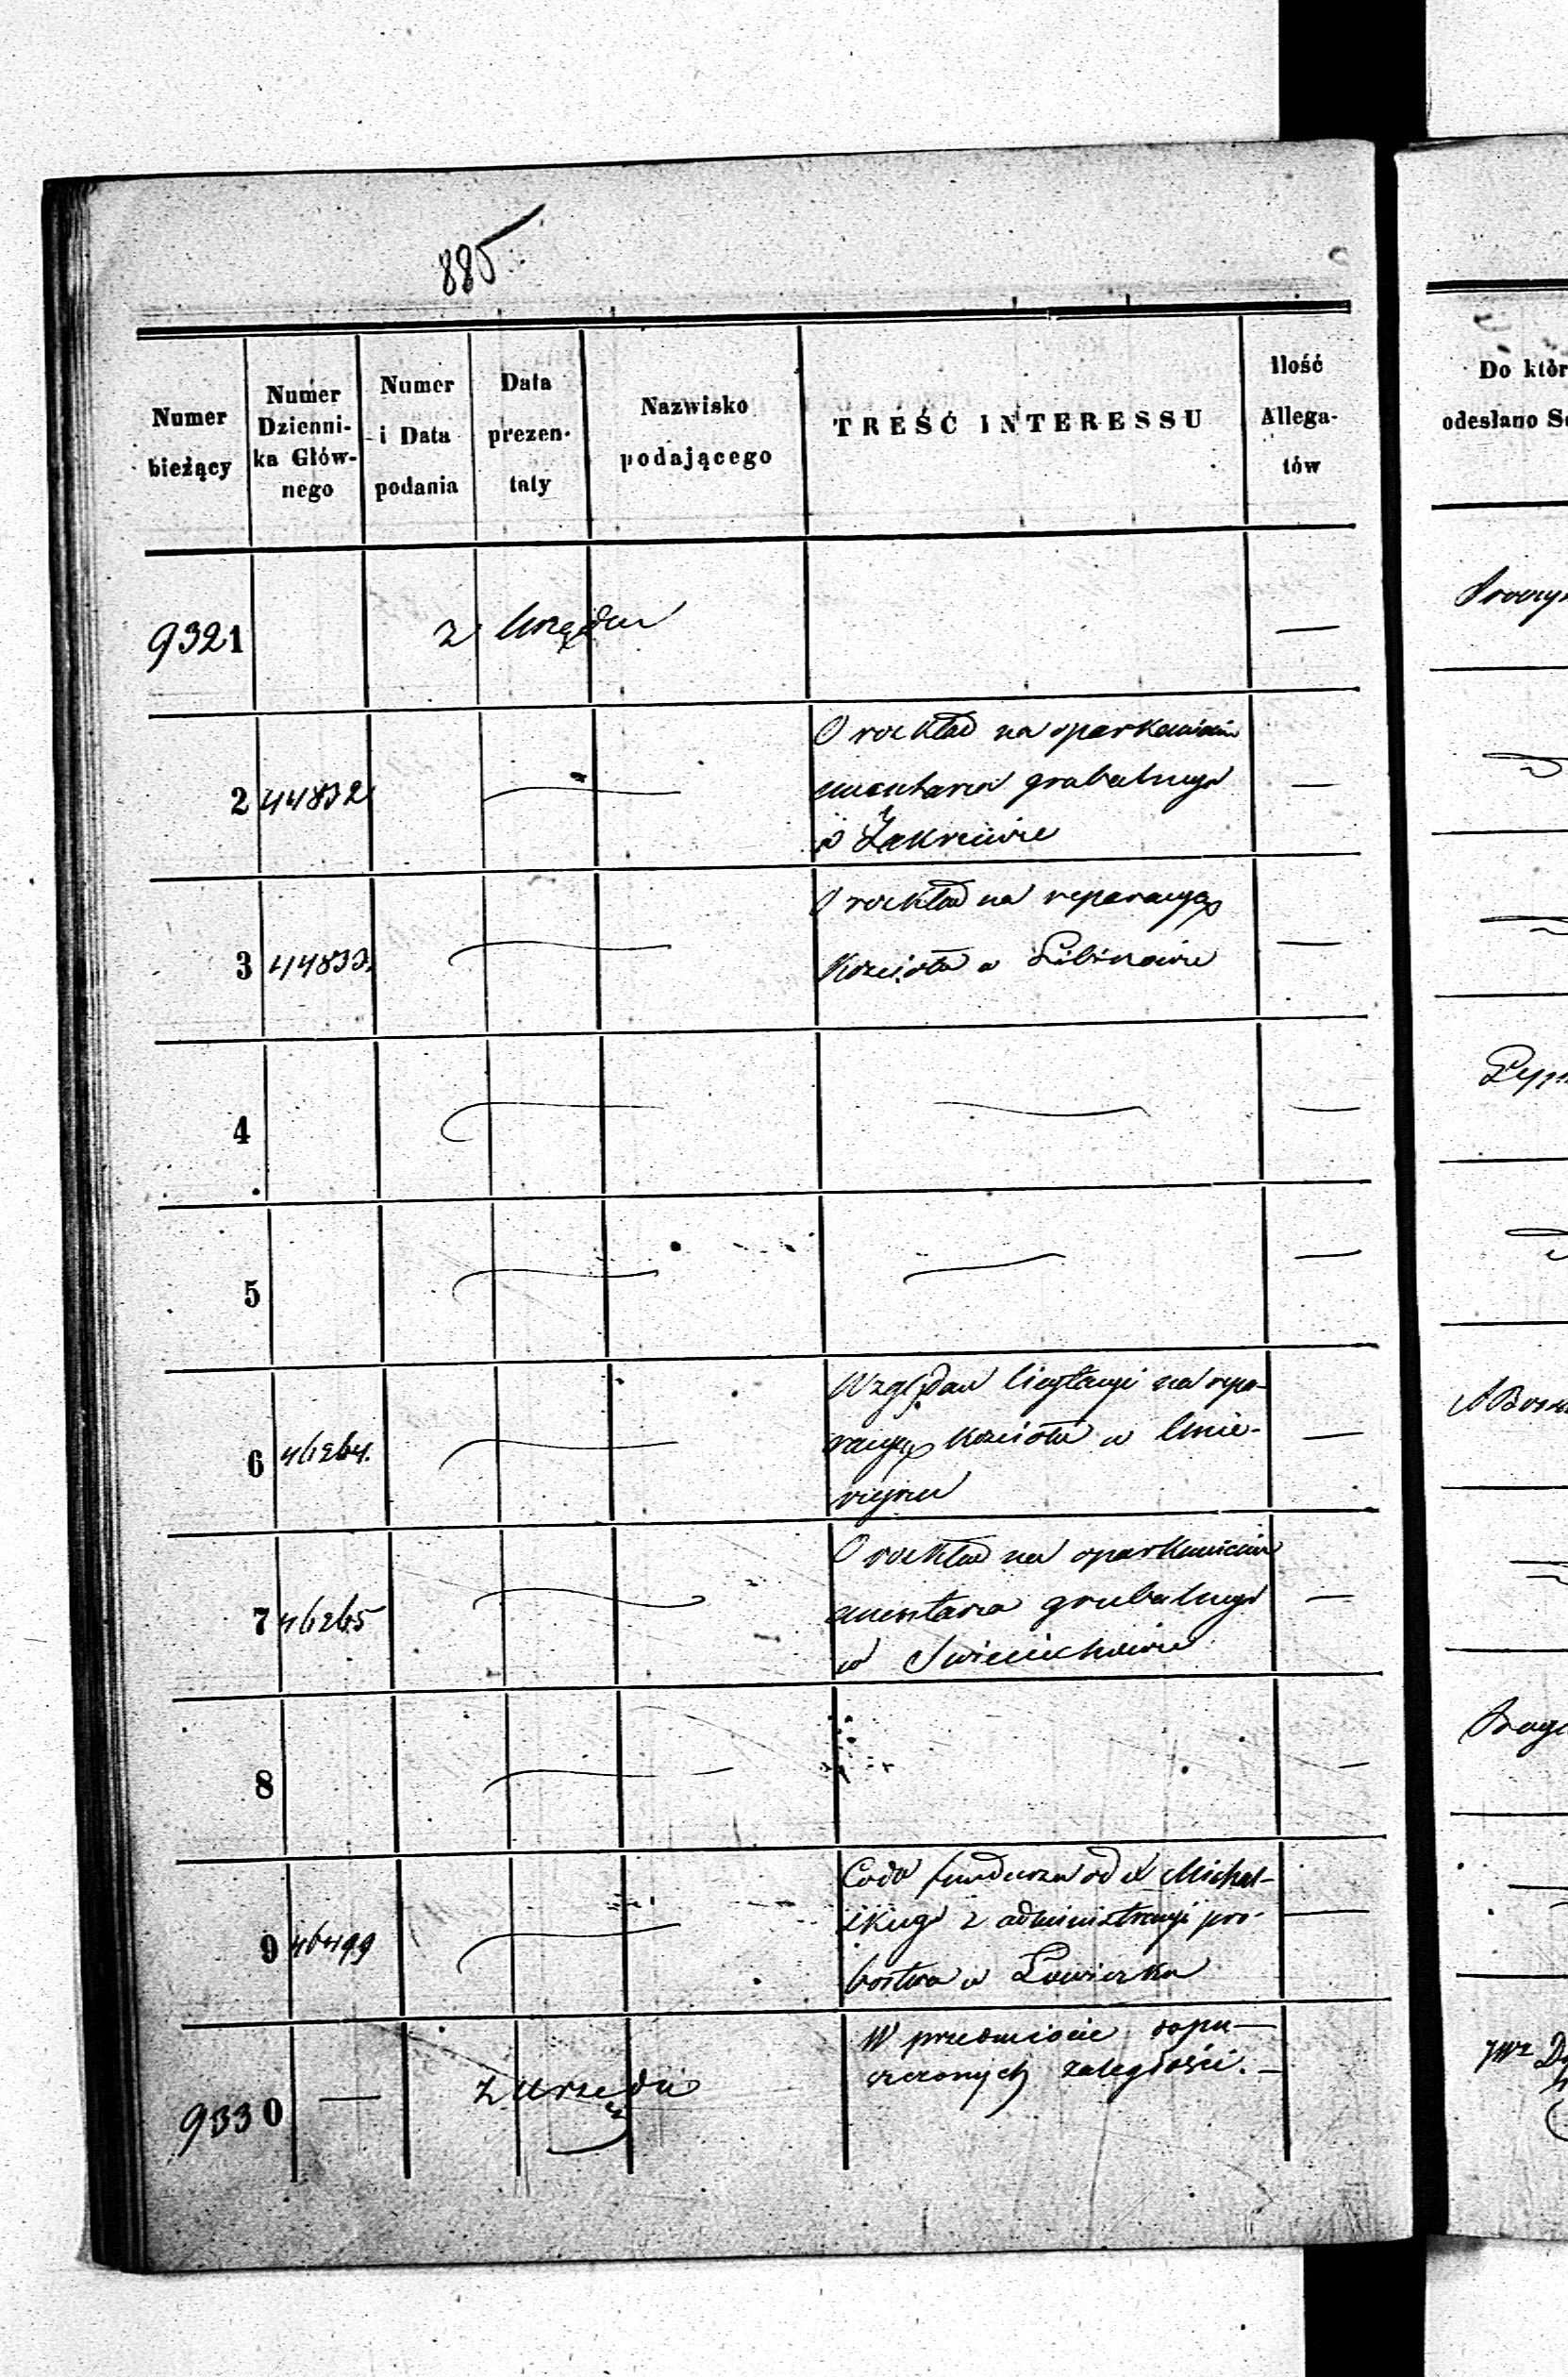 885
Numer bieżący
Numer Dzienni- ka Głów- nego
Numer i Data podania
Data prezen- taty
Nazwisko podającego
TREŚĆ INTERESSU
Ilość Allega- tów
Do któr
odesłano Se
9321 z Urzędu —
2 44832 — O rozkład na oparkanienie
cmentarza grzebalnego
w Zakrzewie
—
3 44833. — O rozkład na reparacyą
Kościoła w Lubinowie
—
4 — — —
5 — — —
6 46264. — Względem licytacyi na repa-
racyą kościoła w Unie-
—
7 46265 — O rozkład na oparkanienie
cmentarza grzebalnego
w Swieciechowie
—
8 — — —
9 46499 — Co do funduszu od X Michal-
skiego z administracyi pro-
bostwa w
—
9330 — z Urzędu W przedmiocie dopu-
szczonych zaległości. —